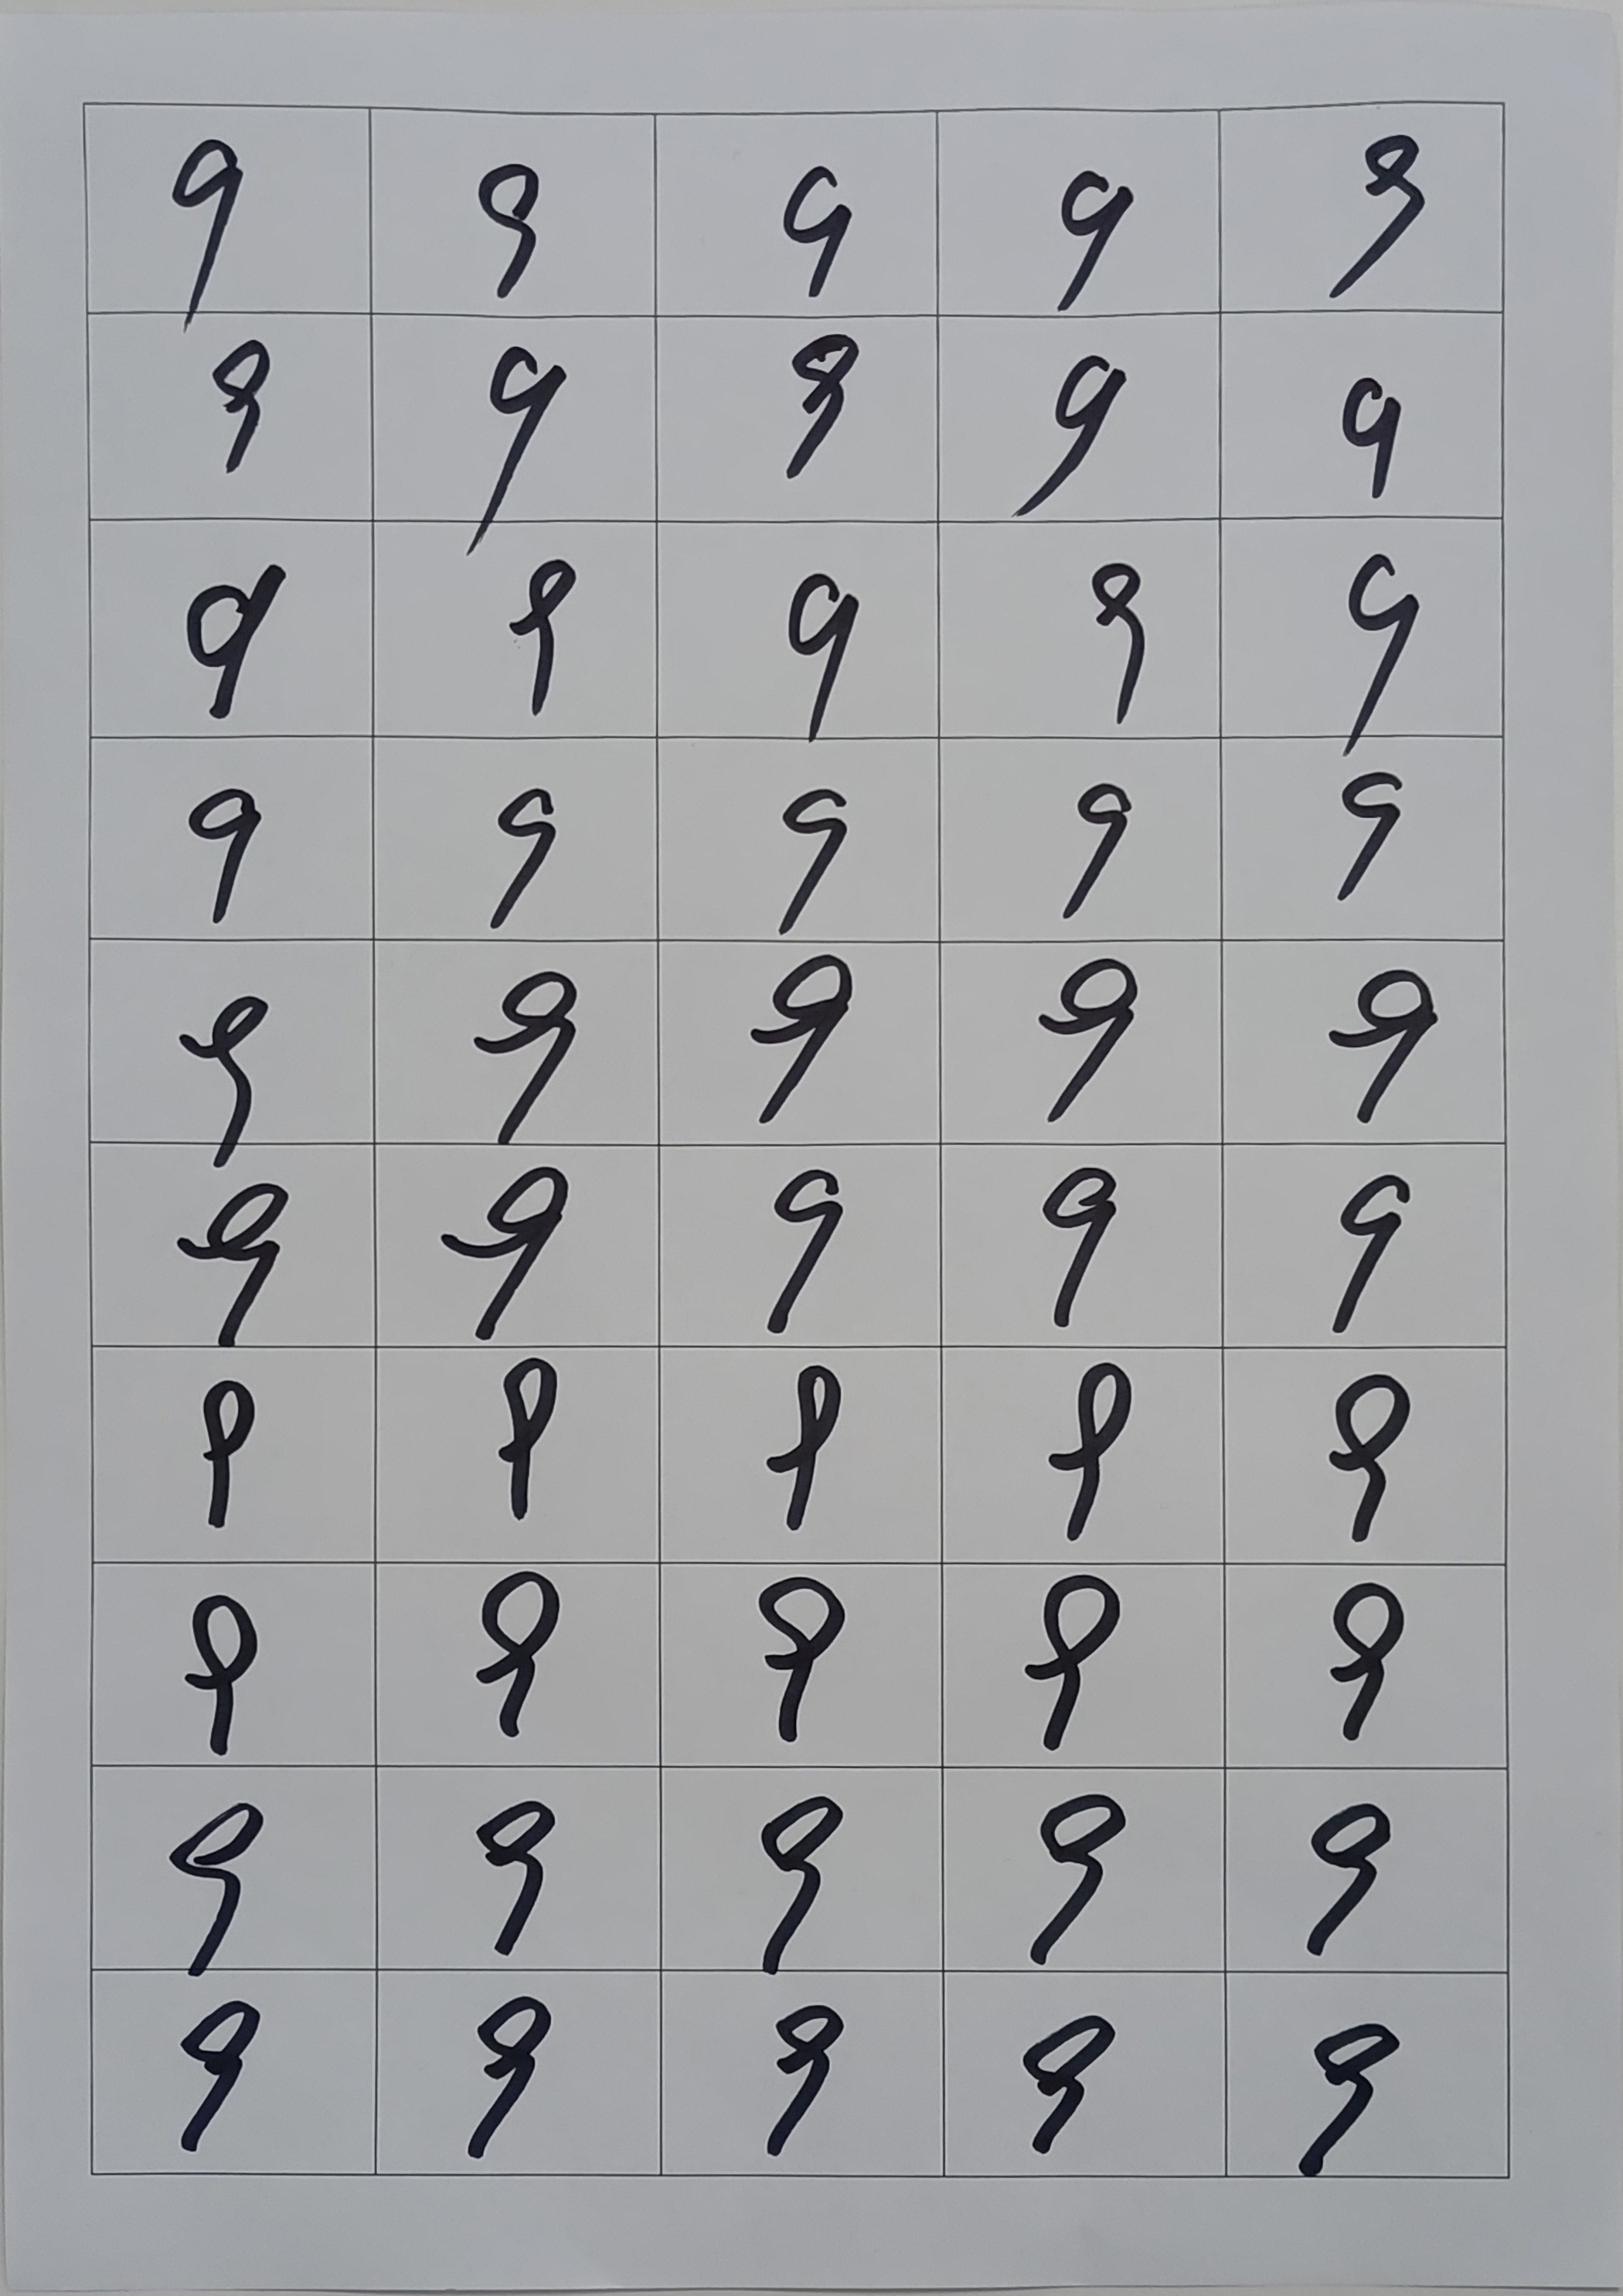 9 9 9 9 9
9 9 9 9 9
9 9 9 9 9
9 9 9 9 9
9 9 9 9 9
9 9 9 9 9
9 9 9 9 9
9 9 9 9 9
9 9 9 9 9
9 9 9 9 9